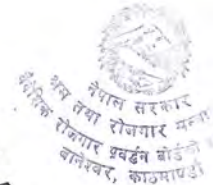 नेपाल सरकार
श्रम तथा रोजगार मन्त्रा
वैदेशिक रोजगार प्रवर्द्धन बोर्डको
बानेश्वर, काठमाण्डौ